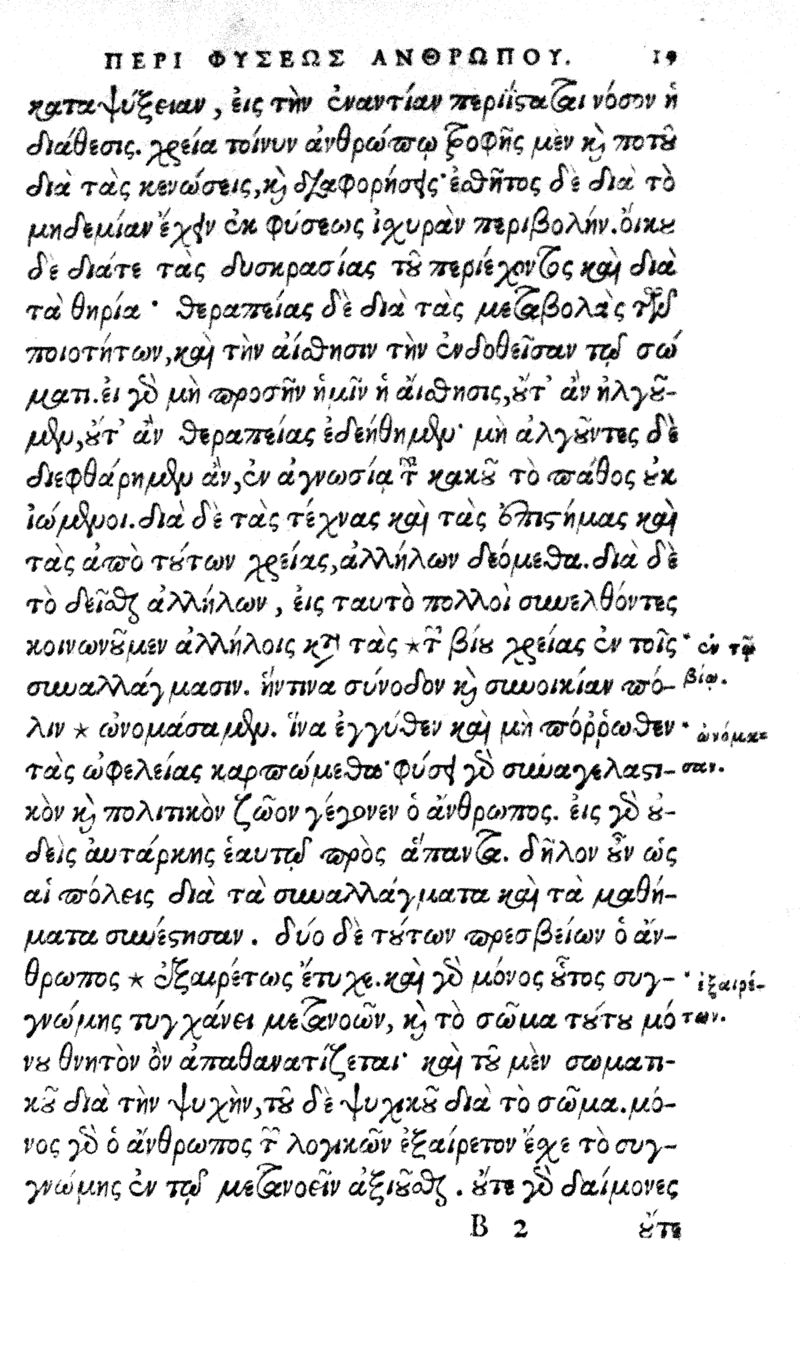 ΠΕΡΙ ΦΥΣΕΩΣ ΑΝΘΡΩΠΟΥ. 19
καταψύξειαν, εἰς τὴν ἐναντίαν περιΐσταται νόσον ἡ
διάθεσις. χρεία τοίνυν ἀνθρώπῳ τροφῆς μὲν καὶ ποτοῦ
διὰ τὰς κενώσεις, καὶ διαφορήσεις· ἐσθῆτος δὲ διὰ τὸ
μηδεμίαν ἔχειν ἐκ φύσεως ἰσχυρὰν περιβολήν. οἴκου
δὲ διάτε τὰς δυσκρασίας τοῦ περιέχοντος καὶ διὰ
τὰ θηρία· θεραπείας δὲ διὰ τὰς μεταβολὰς τῶν
ποιοτήτων, καὶ τὴν αἴσθησιν τὴν ἐνδοθεῖσαν τῷ σώ
ματι. εἰ γὰρ μὴ προσῆν ἡμῖν ἡ αἴσθησις, οὔτ' ἂν ἠλγοῦ-
μεν, οὔτ' ἂν θεραπείας ἐδεήθημεν· μὴ ἀλγοῦντες δὲ
διεφθάρημεν ἂν, ἐν ἀγνωσίᾳ τοῦ κακοῦ τὸ πάθος οὐκ
ἰώμενοι. διὰ δὲ τὰς τέχνας καὶ τὰς ἐπιστήμας καὶ
τὰς ἀπὸ τούτων χρείας, ἀλλήλων δεόμεθα. διὰ δὲ
τὸ δεῖσθαι ἀλλήλων, εἰς ταυτὸ πολλοὶ συνελθόντες
κοινωνοῦμεν ἀλλήλοις κατὰ τὰς * τοῦ βίου χρείας ἐν τοῖς * ἐν τῷ
συναλλάγμασιν. ἥντινα σύνοδον καὶ συνοικίαν πό- βίῳ.
λιν * ὠνομάσαμεν. ἵνα ἐγγύθεν καὶ μὴ πόῤῥωθεν * ὠνόμα-
τὰς ὠφελείας καρπώμεθα· φύσει γὰρ συναγελαστι- σαν.
κὸν καὶ πολιτικὸν ζῶον γέγονεν ὁ ἄνθρωπος. εἷς γὰρ οὐ-
δεὶς αὐτάρκης ἑαυτῷ πρὸς ἅπαντα. δῆλον οὖν ὡς
αἱ πόλεις διὰ τὰ συναλλάγματα καὶ τὰ μαθή-
ματα συνέστησαν. δύο δὲ τούτων πρεσβείων ὁ ἄν-
θρωπος * ἐξαιρέτως ἔτυχε. καὶ γὰρ μόνος οὗτος συγ- * ἐξαιρέ-
γνώμης τυγχάνει μετανοῶν, καὶ τὸ σῶμα τούτου μό των.
νου θνητὸν ὂν ἀπαθανατίζεται· καὶ τοῦ μὲν σωματι-
κοῦ διὰ τὴν ψυχὴν, τοῦ δὲ ψυχικοῦ διὰ τὸ σῶμα. μό-
νος γὰρ ὁ ἄνθρωπος τῶν λογικῶν ἐξαίρετον ἔχε τὸ συγ-
γνώμης ἐν τῷ μετανοεῖν ἀξιοῦσθαι. οὔτε γὰρ δαίμονες
B 2 οὔτε